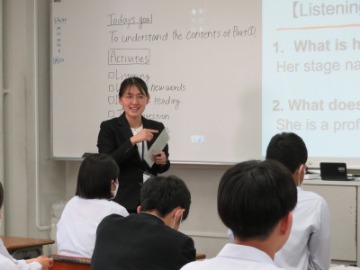 Today's goal
To understand the contents of Part①
Activities
□ Listening
new words
□ Reading
【Listening
1. What is h
Her stage na
2. What does
She is a prof